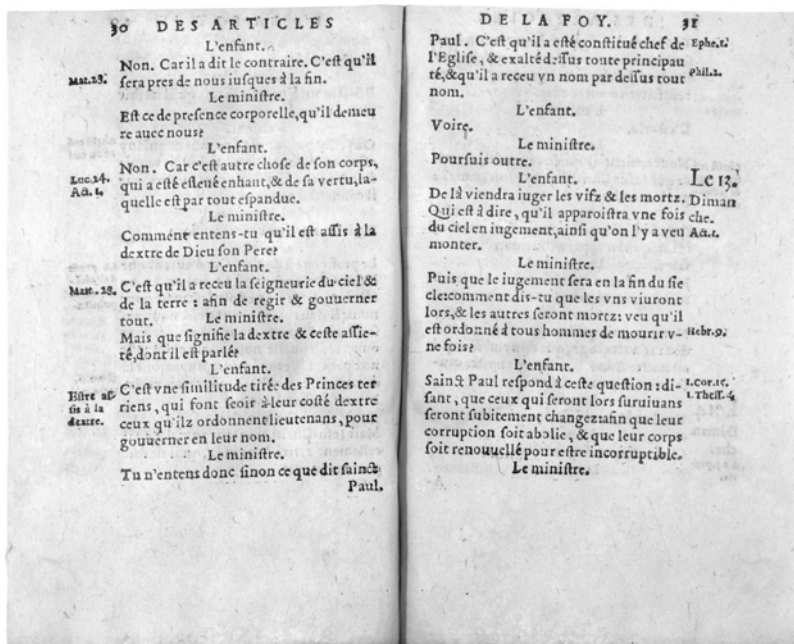 30 DES ARTICLES
L'enfant.
Non. Car il a dit le contraire. C'eſt qu'il
Mat.28. ſera pres de nous iuſques à la fin.
Le miniſtre.
Eſt ce de preſence corporelle, qu'il demeu
re auec nous?
L'enfant.
Non. Car c'eſt autre choſe de ſon corps,
Luc.24. qui a eſté eſleué enhaut, & de ſa vertu, la-
Act.1. quelle eſt par tout eſpandue.
Le miniſtre.
Comment entens-tu qu'il eſt aſſis à la
dextre de Dieu ſon Pere?
L'enfant.
Mat.28. C'eſt qu'il a receu la ſeigneurie du ciel &
de la terre : afin de regir & gouuerner
tout. Le miniſtre.
Mais que ſignifie la dextre & ceſte aſſie-
té, dont il eſt parlé?
L'enfant.
Eſtre aſ C'eſt vne ſimilitude tirée des Princes ter
ſis à la riens, qui font ſeoir à leur coſté dextre
dextre. ceux qu'ilz ordonnent lieutenans, pour
gouuerner en leur nom.
Le miniſtre.
Tu n'entens donc ſinon ce que dit ſainct
Paul.
DE LA FOY. 31
Paul. C'eſt qu'il a eſté conſtitué chef de Ephe.1.
l'Egliſe, & exalté deſſus toute principau
té, & qu'il a receu vn nom par deſſus tout Phil.2.
nom.
L'enfant.
Voire.
Le miniſtre.
Pourſuis outre.
L'enfant. Le 13.
De là viendra iuger les vifz & les mortz. Diman
Qui eſt à dire, qu'il apparoiſtra vne fois che.
du ciel en iugement, ainſi qu'on l'y a veu Act.1.
monter.
Le miniſtre.
Puis que le iugement ſera en la fin du ſie
cle: comment dis-tu que les vns viuront
lors, & les autres ſeront mortz: veu qu'il
eſt ordonné à tous hommes de mourir v- Hebr.9.
ne fois?
L'enfant.
Sainct Paul reſpond à ceſte queſtion : di- 1.Cor.15.
ſant, que ceux qui ſeront lors ſuruiuans 1.Theſſ.4.
ſeront ſubitement changez: afin que leur
corruption ſoit abolie, & que leur corps
ſoit renouuellé pour eſtre incorruptible.
Le miniſtre.